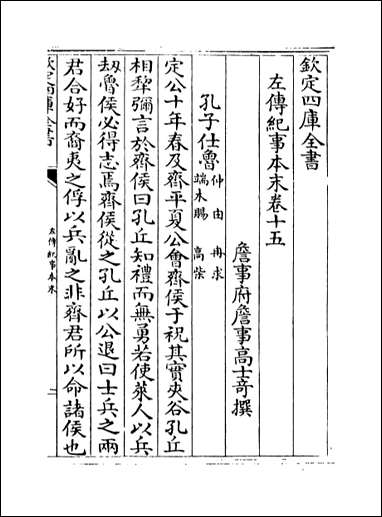 欽定四庫全書
左傳紀事本末卷十五
詹事府詹事高士奇撰
孔子仕魯 仲由 冉求 端木賜 高柴
定公十年春及齊平夏公會齊侯于祝其實夾谷孔丘
相犂彌言於齊侯曰孔丘知禮而無勇若使萊人以兵
刼魯侯必得志焉齊侯從之孔丘以公退曰士兵之兩
君合好而裔夷之俘以兵亂之非齊君所以命諸侯也
欽定四庫全書
左傳紀事本末